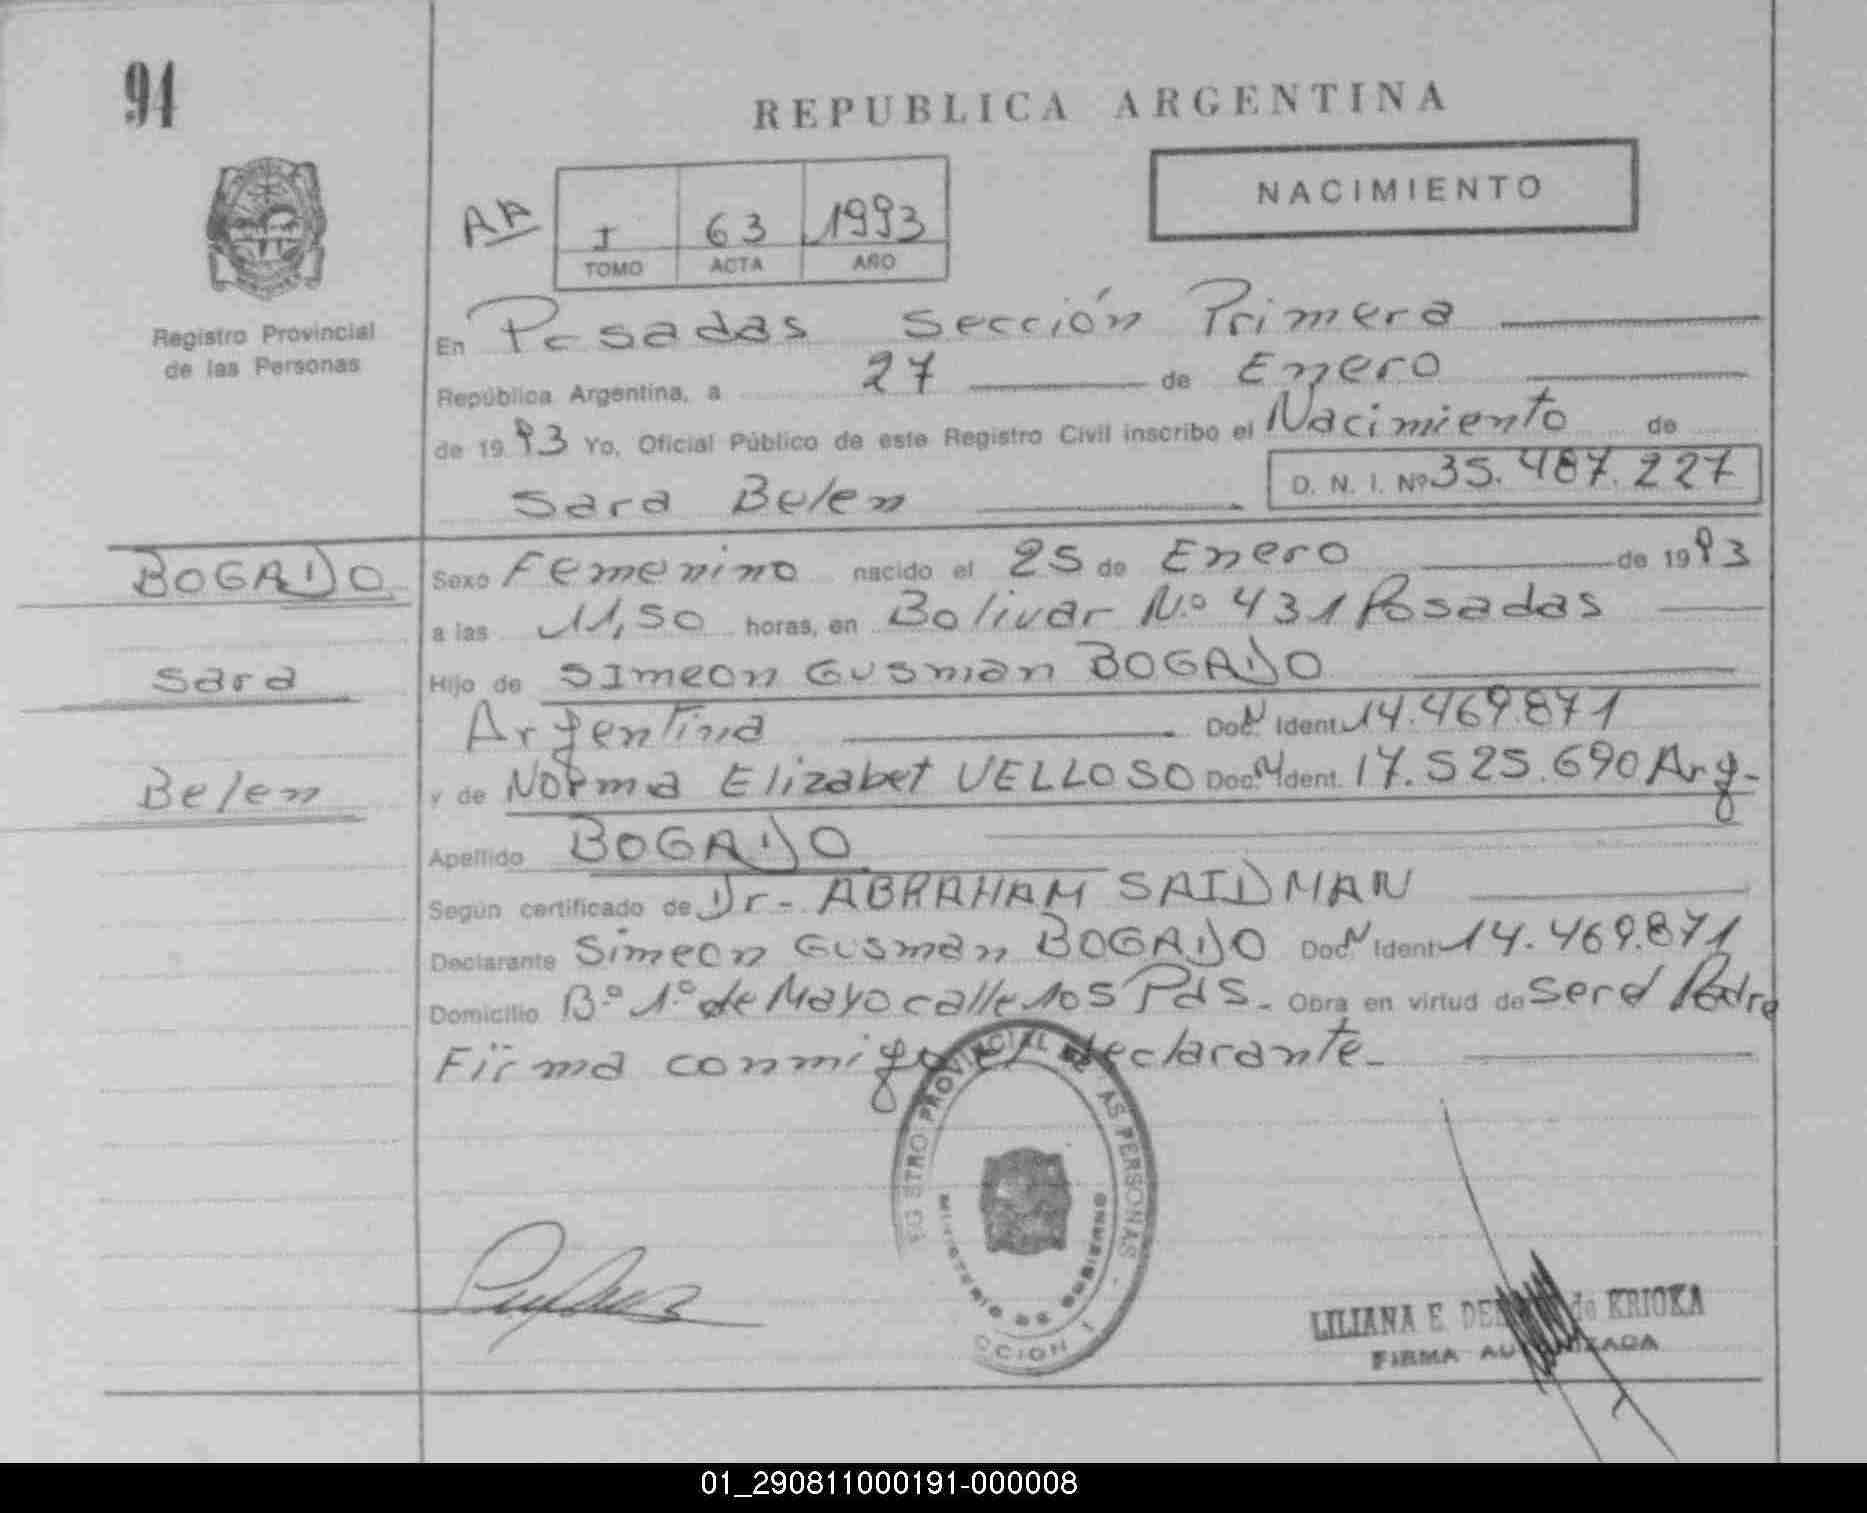 94
REPUBLICA ARGENTINA
NACIMIENTO
AA
I 63 1993
TOMO ACTA AÑO
Registro Provincial
de las Personas
En Posadas Sección Primera
República Argentina, a 27 de Enero
de 1993 Yo, Oficial Público de este Registro Civil inscribo el Nacimiento de
Sara Belen D. N. I. Nº 35.487.227
BOGADO
Sexo Femenino nacido el 25 de Enero de 1993
a las 11,50 horas, en Bolivar N.º 431 Posadas
Sara
Hijo de SImeon Gusman BOGADO
Argentina Doc. N Ident. 14.469.871
Belen
y de Norma Elizabet VELLOSO Doc. N Ident. 17.525.690 Arg-
Apellido BOGADO
Según certificado de Dr- ABRAHAM SAIDMAN
Declarante Simeon Gusman BOGADO Doc. N Ident. 14.469.871
Domicilio Bº 1º de Mayo calle 105 Pdas- Obra en virtud de ser el Padre
Firma conmigo el declarante-
REGISTRO PROVINCIAL DE LAS PERSONAS
MINISTERIO DE GOBIERNO
LILIANA E. de KRIOKA
FIRMA AUTORIZADA
01_290811000191-000008